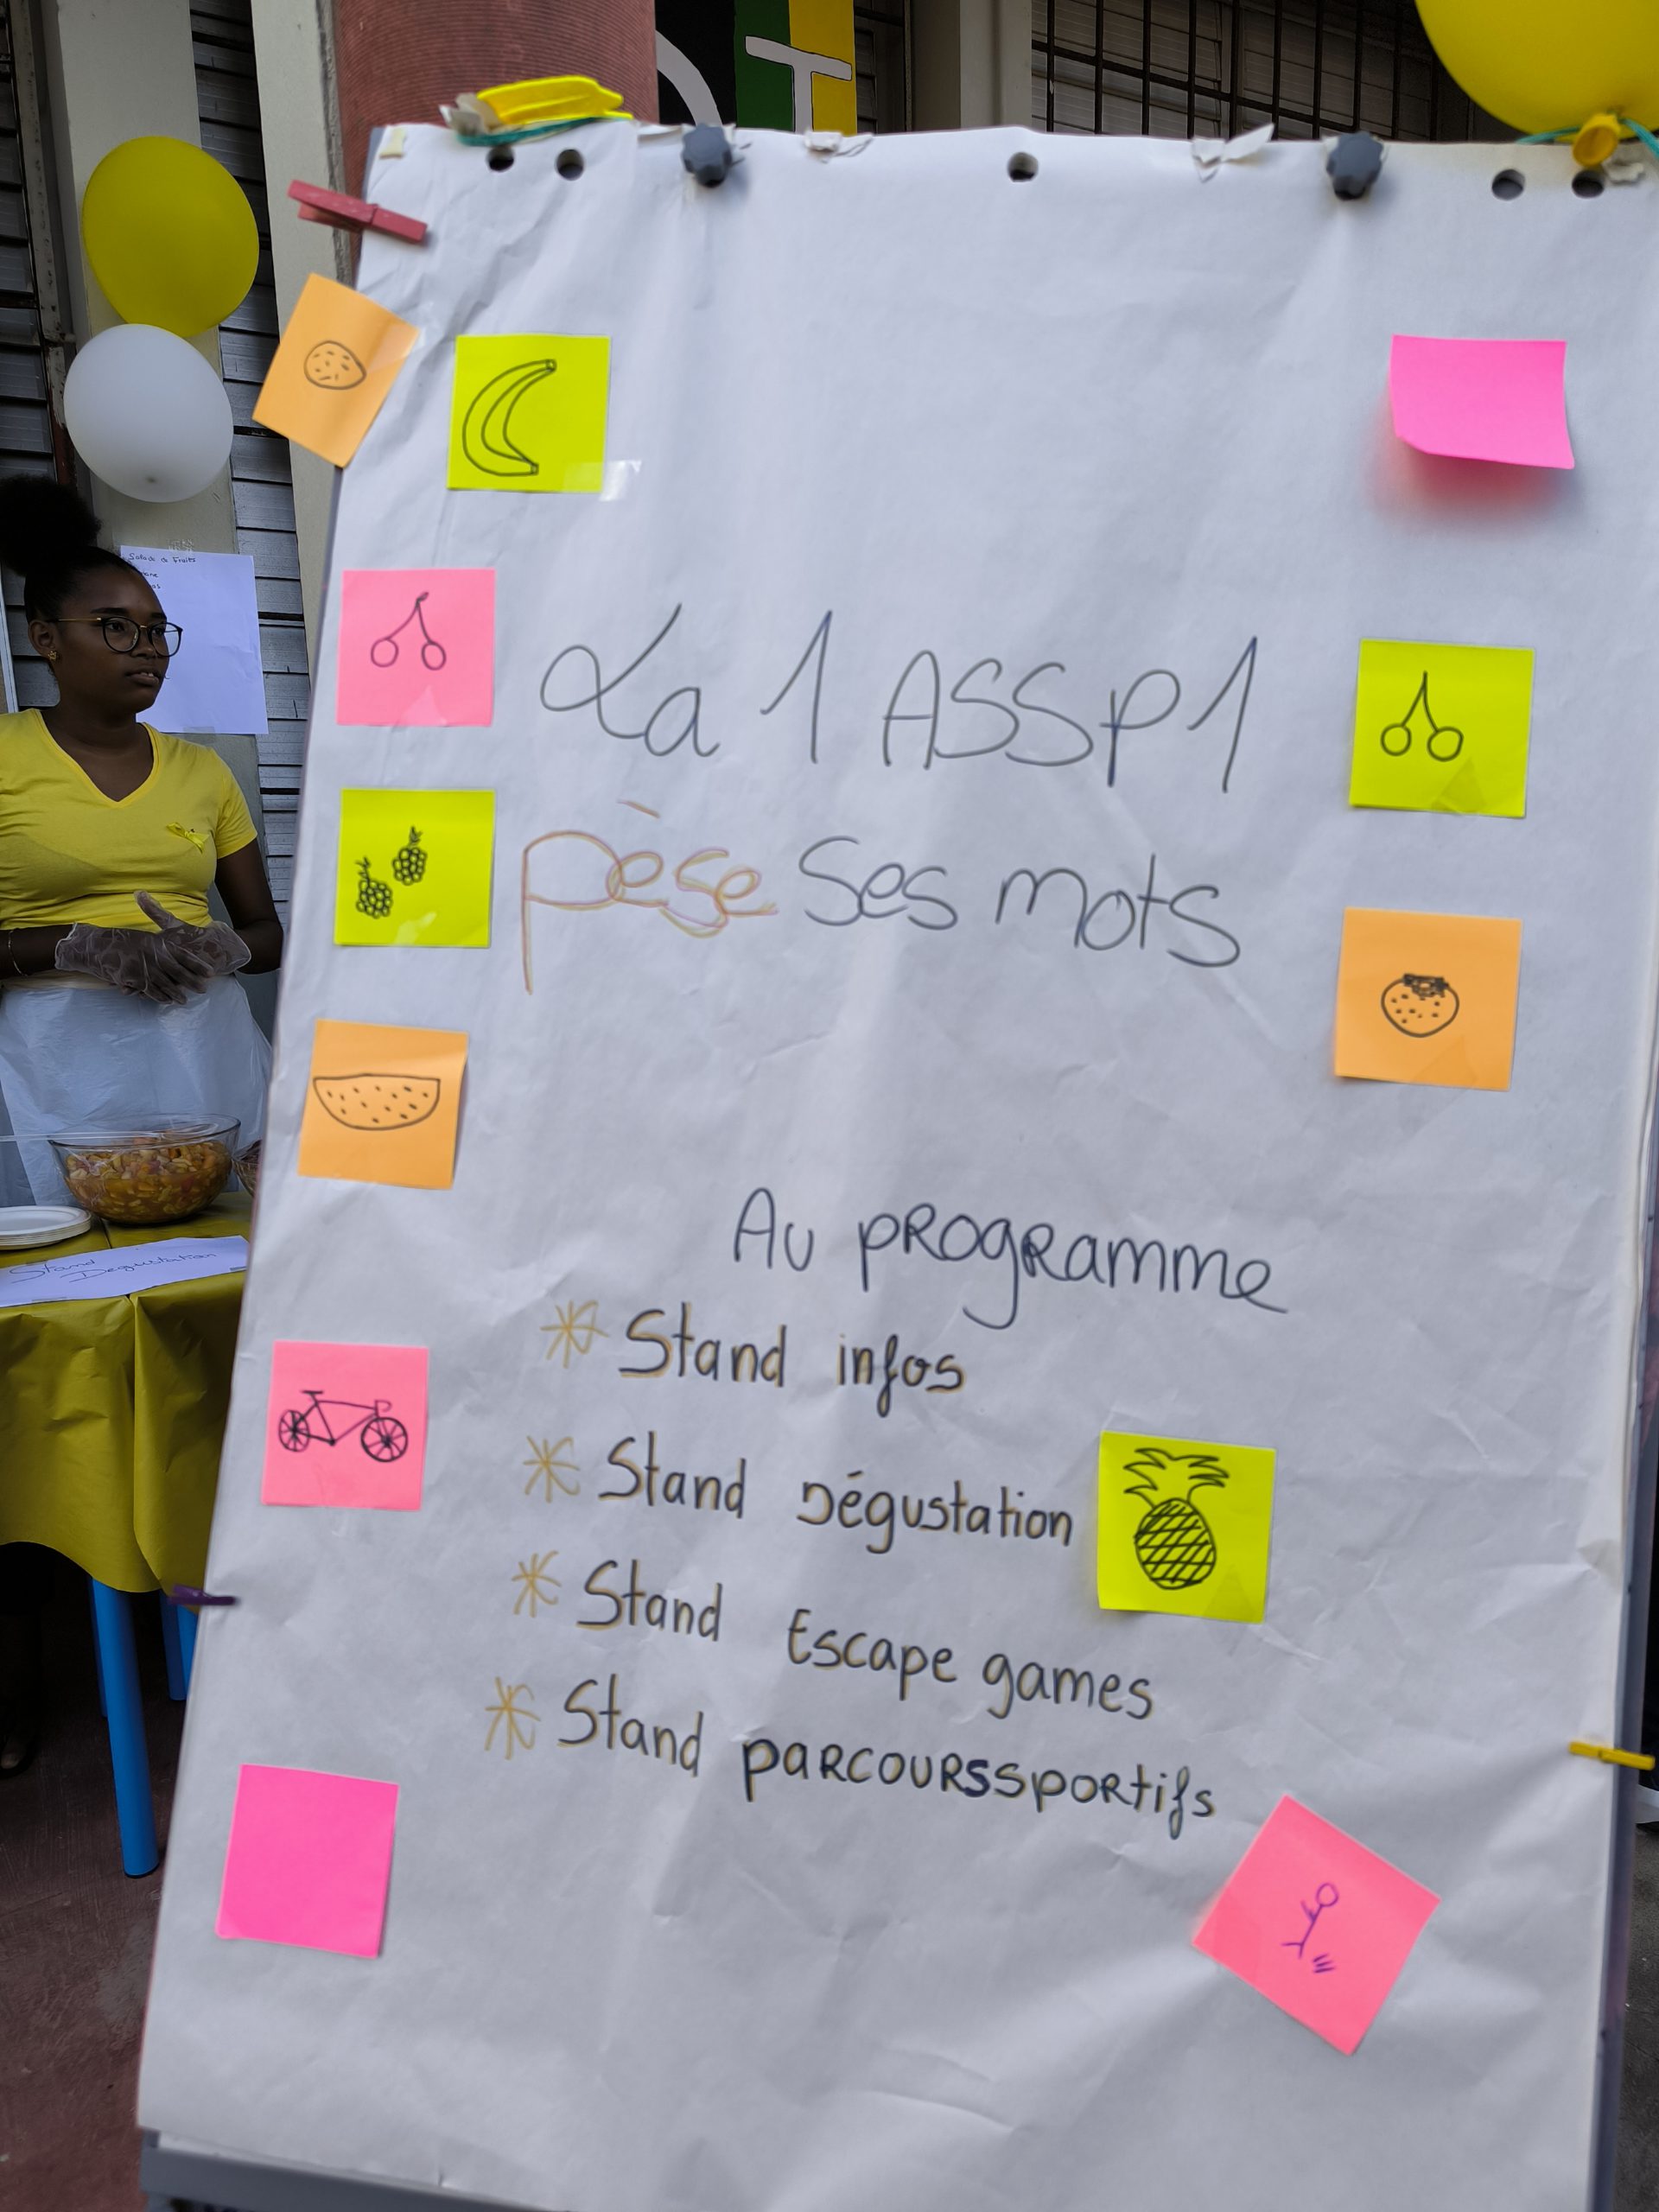 La 1 ASSP1
pèse ses mots
Au programme
* Stand infos
* Stand Dégustation
* Stand Escape games
* Stand parcourssportifs
Salade de Fruits
Stand
Degustation
T